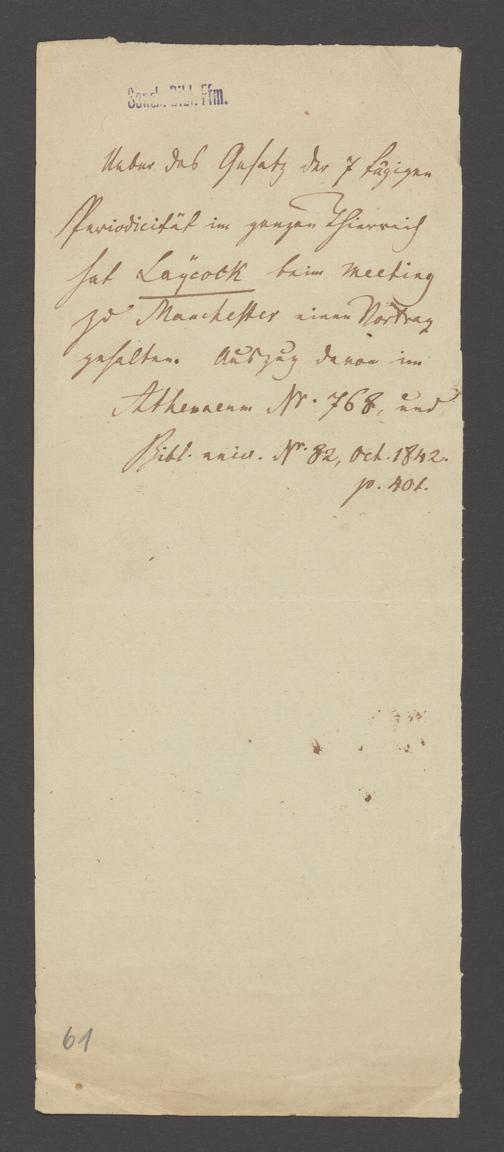 Senck. Bibl. Ffm.
Ueber das Gesetz der 7 tägigen
Periodicität im ganzen Thierreich
hat Laÿcock beim meeting
zu Manchester einen Vortrag
gehalten. Auszug davon im
Athenaeum Nr. 768, und
Bibl. univ. Nr. 82, Oct. 1842.
p. 401.
61